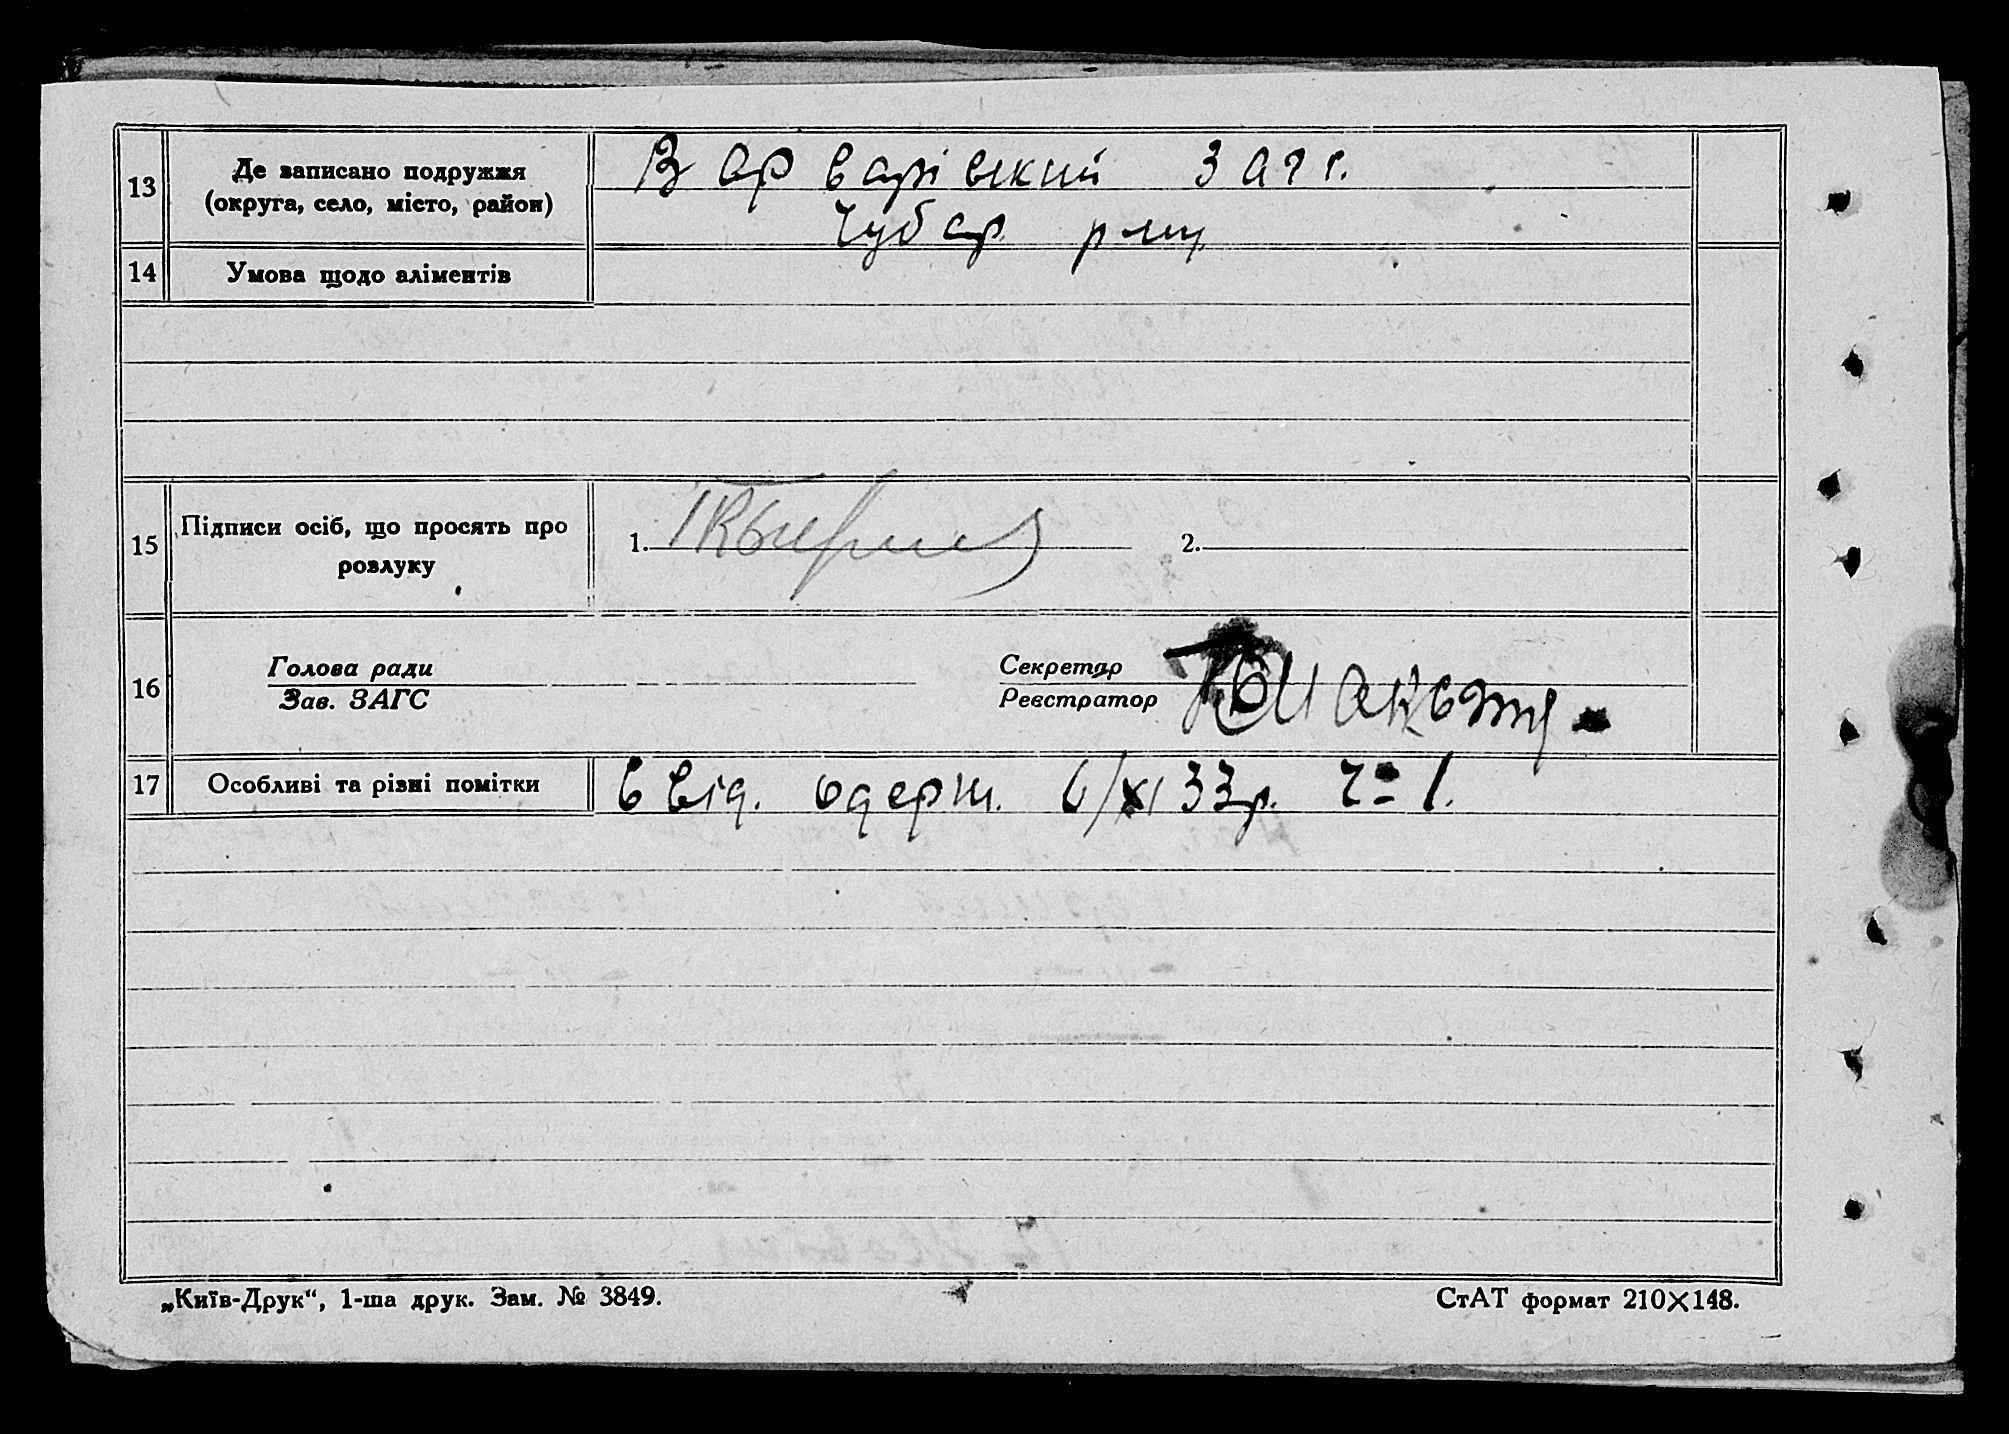 13
Де записано подружжя
(округа, село, місто, район)
Варварівский Загс.
Чубар
14
Умова щодо аліментів
15
Підписи осіб, що просять про
розлуку
1.
2.
16
Голова ради
Зав. ЗАГС
Секретар
Реєстратор
17
Особливі та різні помітки
одерж. 6/XI 33р. 1.
„Київ-Друк“, 1-ша друк. Зам. № 3849.
СтАТ формат 210×148.